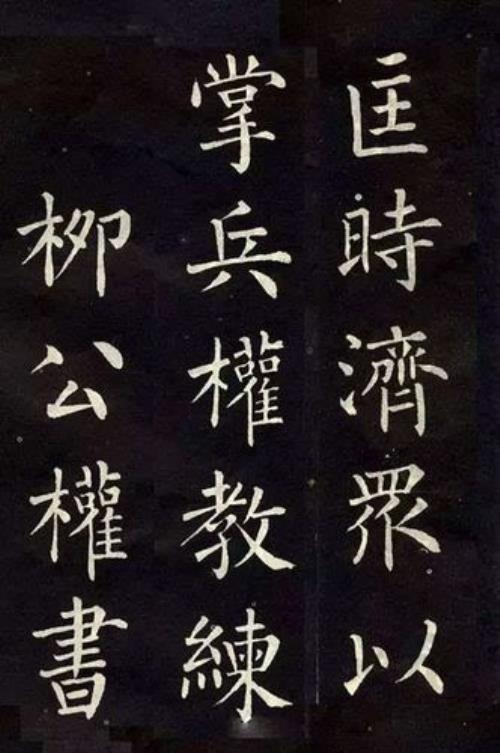 匡時濟眾以
掌兵權教練
柳公權書